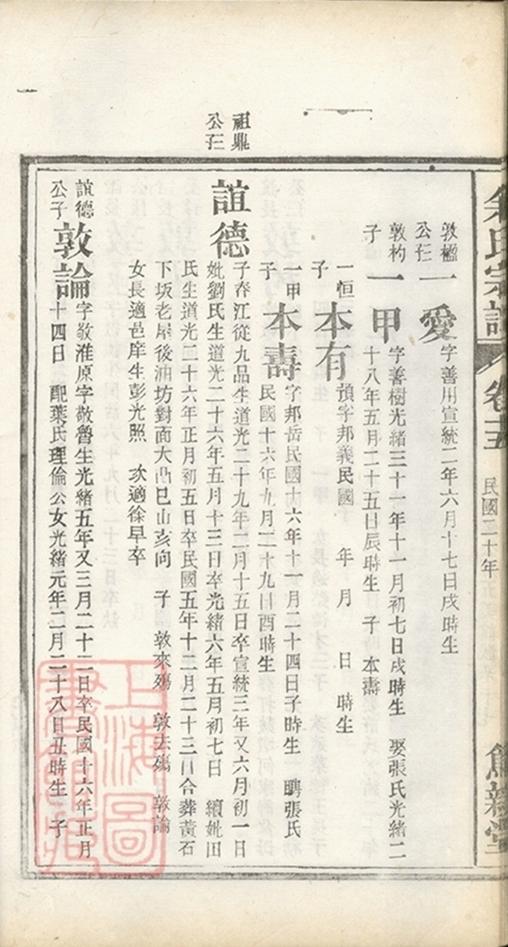 朱氏宗譜
卷十五
民國二十年
敦楹公三子
一愛
字善川宣統二年六月十七日戌時生
敦杓子
一甲
字善樹光緒三十一年十一月初七日戌時生 娶張氏光緒二
十八年五月二十五日辰時生 子 本壽
一恒子
本有
預字邦義民國 年 月 日 時生
一甲子
本壽
字邦岳民國十六年十一月二十四日子時生 聘張氏
民國十六年九月二十九日酉時生
祖鼎公三子
誼德
子春江從九品生道光二十九年二月十五日卒宣統三年又六月初一日
妣劉氏生道光二十六年五月十三日卒光緒六年五月初七日 續妣田
氏生道光二十六年正月初五日卒民國五年十二月二十三日合葬黃石
下坂老屋後油坊對面大凸巳山亥向 子 敦來殤 敦去殤 敦論
女長適邑庠生彭光照 次適徐早卒
誼德公子
敦論
字敬淮原字敬魯生光緒五年又三月二十二日卒民國十六年正月
十四日 配葉氏理倫公女光緒元年二月二十八日丑時生 子
上海圖書館藏